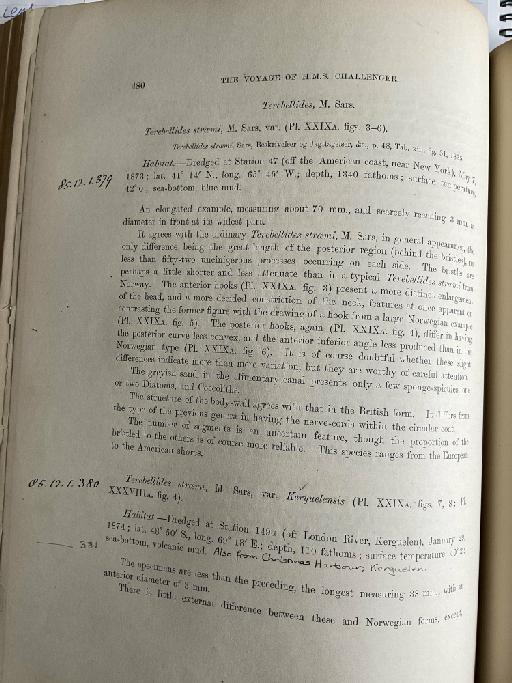 480
THE VOYAGE OF H.M.S. CHALLENGER.
Terebellides, M. Sars.
Terebellides stroemi, M. Sars, var. (Pl. XXIXA. figs. 3–6).
Terebellides stroemi, Sars, Beskrivelser og Iagttagelser, &c., p. 48, Tab.
85.12.1.379
Habitat.—Dredged at Station 47 (off the American coast, near New York), May 7,
1873; lat. 41° 14' N., long. 65° 45' W.; depth, 1340 fathoms; surface temperature
42°0, sea-bottom, blue mud.
An elongated example, measuring about 70 mm., and scarcely reaching 3 mm. in
diameter in front at its widest part.
It agrees with the ordinary Terebellides stroemi, M. Sars, in general appearance, the
only difference being the great length of the posterior region (behind the bristles), no
less than fifty-two uncinigerous processes occurring on each side. The bristles are
perhaps a little shorter and less attenuate than in a typical Terebellides stroemi from
Norway. The anterior hooks (Pl. XXIXA. fig. 3) present a more distinct enlargement
of the head, and a more decided constriction of the neck, features at once apparent on
contrasting the former figure with the drawing of a hook from a large Norwegian example
(Pl. XXIXA. fig. 5). The posterior hooks, again (Pl. XXIXA. fig. 4), differ in having
the posterior curve less convex, and the anterior inferior angle less produced than in the
Norwegian type (Pl. XXIXA. fig. 6). It is of course doubtful whether these slight
differences indicate more than mere variation, but they are worthy of careful attention.
The greyish mud in the alimentary canal presents only a few sponge-spicules and
or two Diatoms, and Coccoliths.
The structure of the body-wall agrees with that in the British form. It differs from
the type of the previous genera in having the nerve-cords within the circular coat.
The number of segments is an uncertain feature, though the proportion of the
bristled to the others is of course more reliable. This species ranges from the European
to the American shores.
85.12.1.380
Terebellides stroemi, M. Sars, var. Kerguelensis (Pl. XXIXA. figs. 7, 8; Pl.
XXXVIIIA. fig. 4).
Habitat.—Dredged at Station 149D (off London River, Kerguelen), January 29,
1874; lat. 48° 50' S., long. 69° 18' E.; depth, 110 fathoms; surface temperature
sea-bottom, volcanic mud. Also from Christmas Harbour, Kerguelen.
— 381
The specimens are less than the preceding, the longest measuring 35 mm., with an
anterior diameter of 3 mm.
There is little external difference between these and Norwegian forms, except